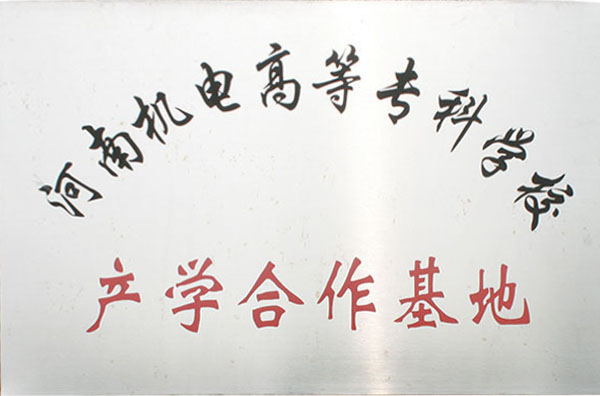 河南机电高等专科学校
产学合作基地